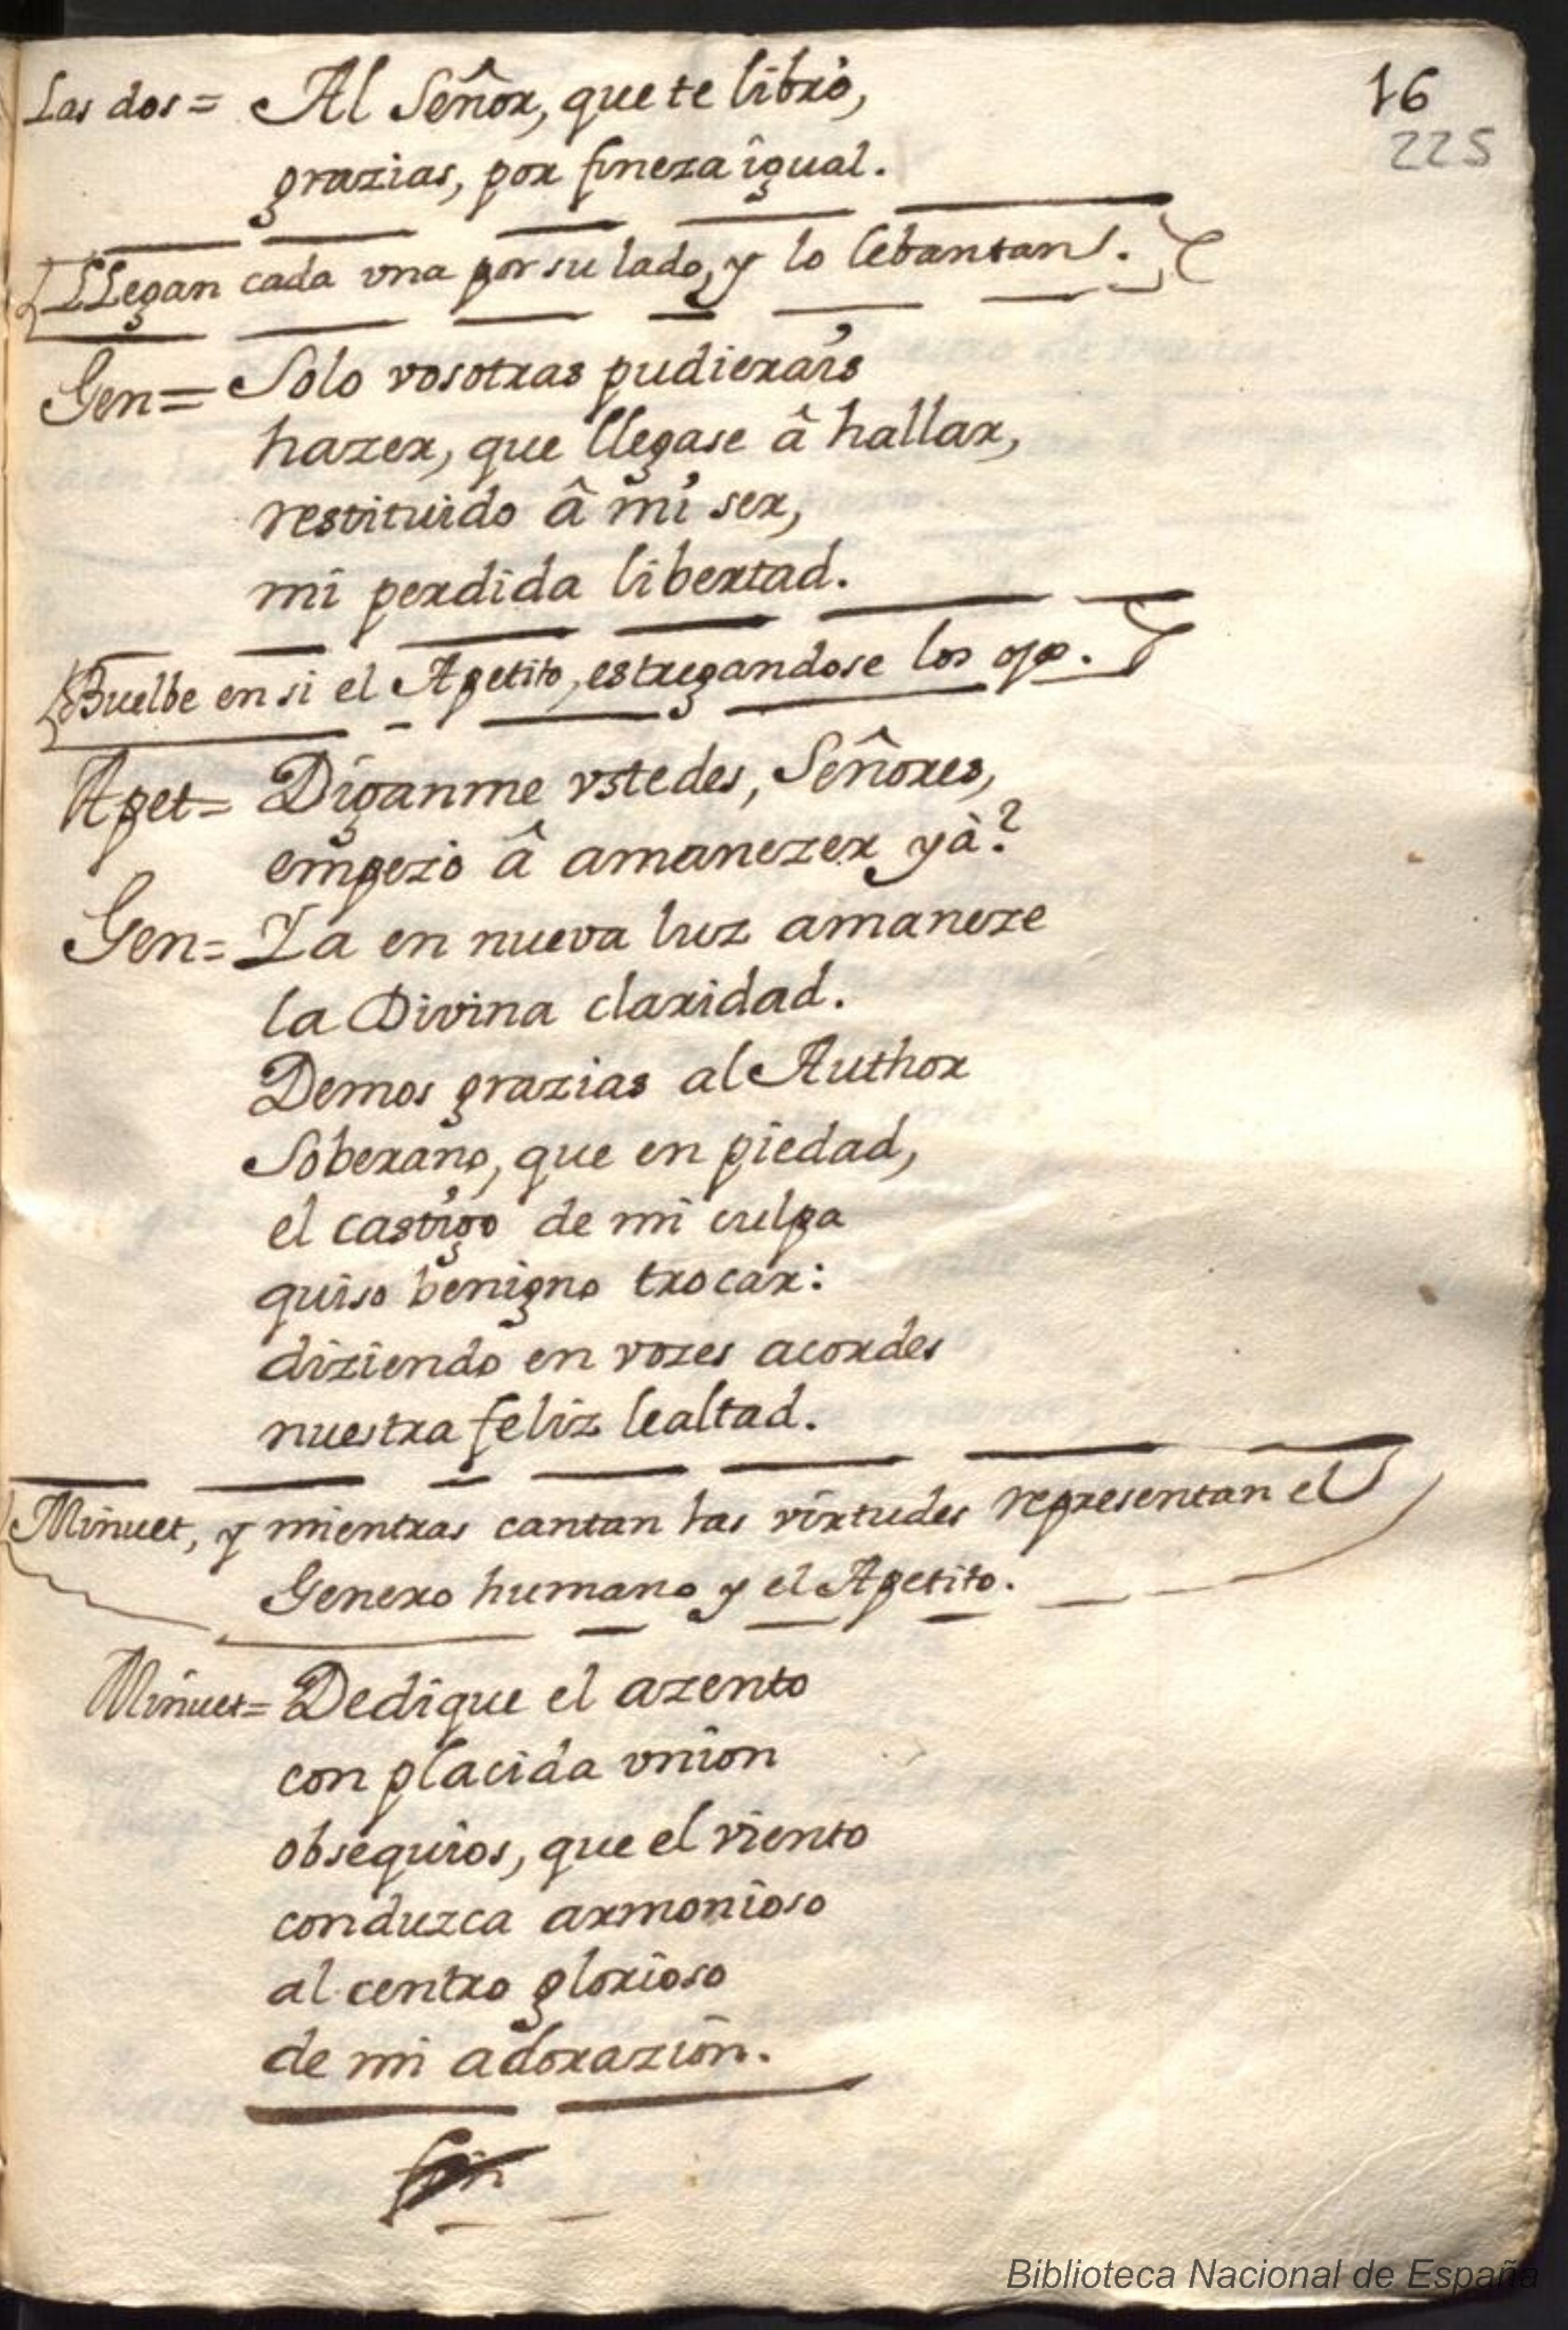 16
225
Las dos= Al Señor, que te librò,
grazias, por fineza igual.
LLegan cada vna por su lado, y lo lebantan.
Gen= Solo vosotras pudierais
hazer, que llegase â hallar,
restituido â mi ser,
mi perdida libertad.
Buelbe en si el Apetito, estregandose los ojos.
Apet= Diganme vstedes, Señores,
empezò â amanezer yà?
Gen= Ya en nueva luz amaneze
la Divina claridad.
Demos grazias al Author
Soberano, que en piedad,
el castigo de mi culpa
quiso benigno trocar:
diziendo en vozes acordes
nuestra feliz lealtad.
Minuet, y mientras cantan las virtudes representan el
Genero humano y el Apetito.
Minuet= Dedique el azento
con placida vnion
obsequios, que el viento
conduzca armonioso
al centro glorioso
de mi adorazion.
fin
Biblioteca Nacional de España